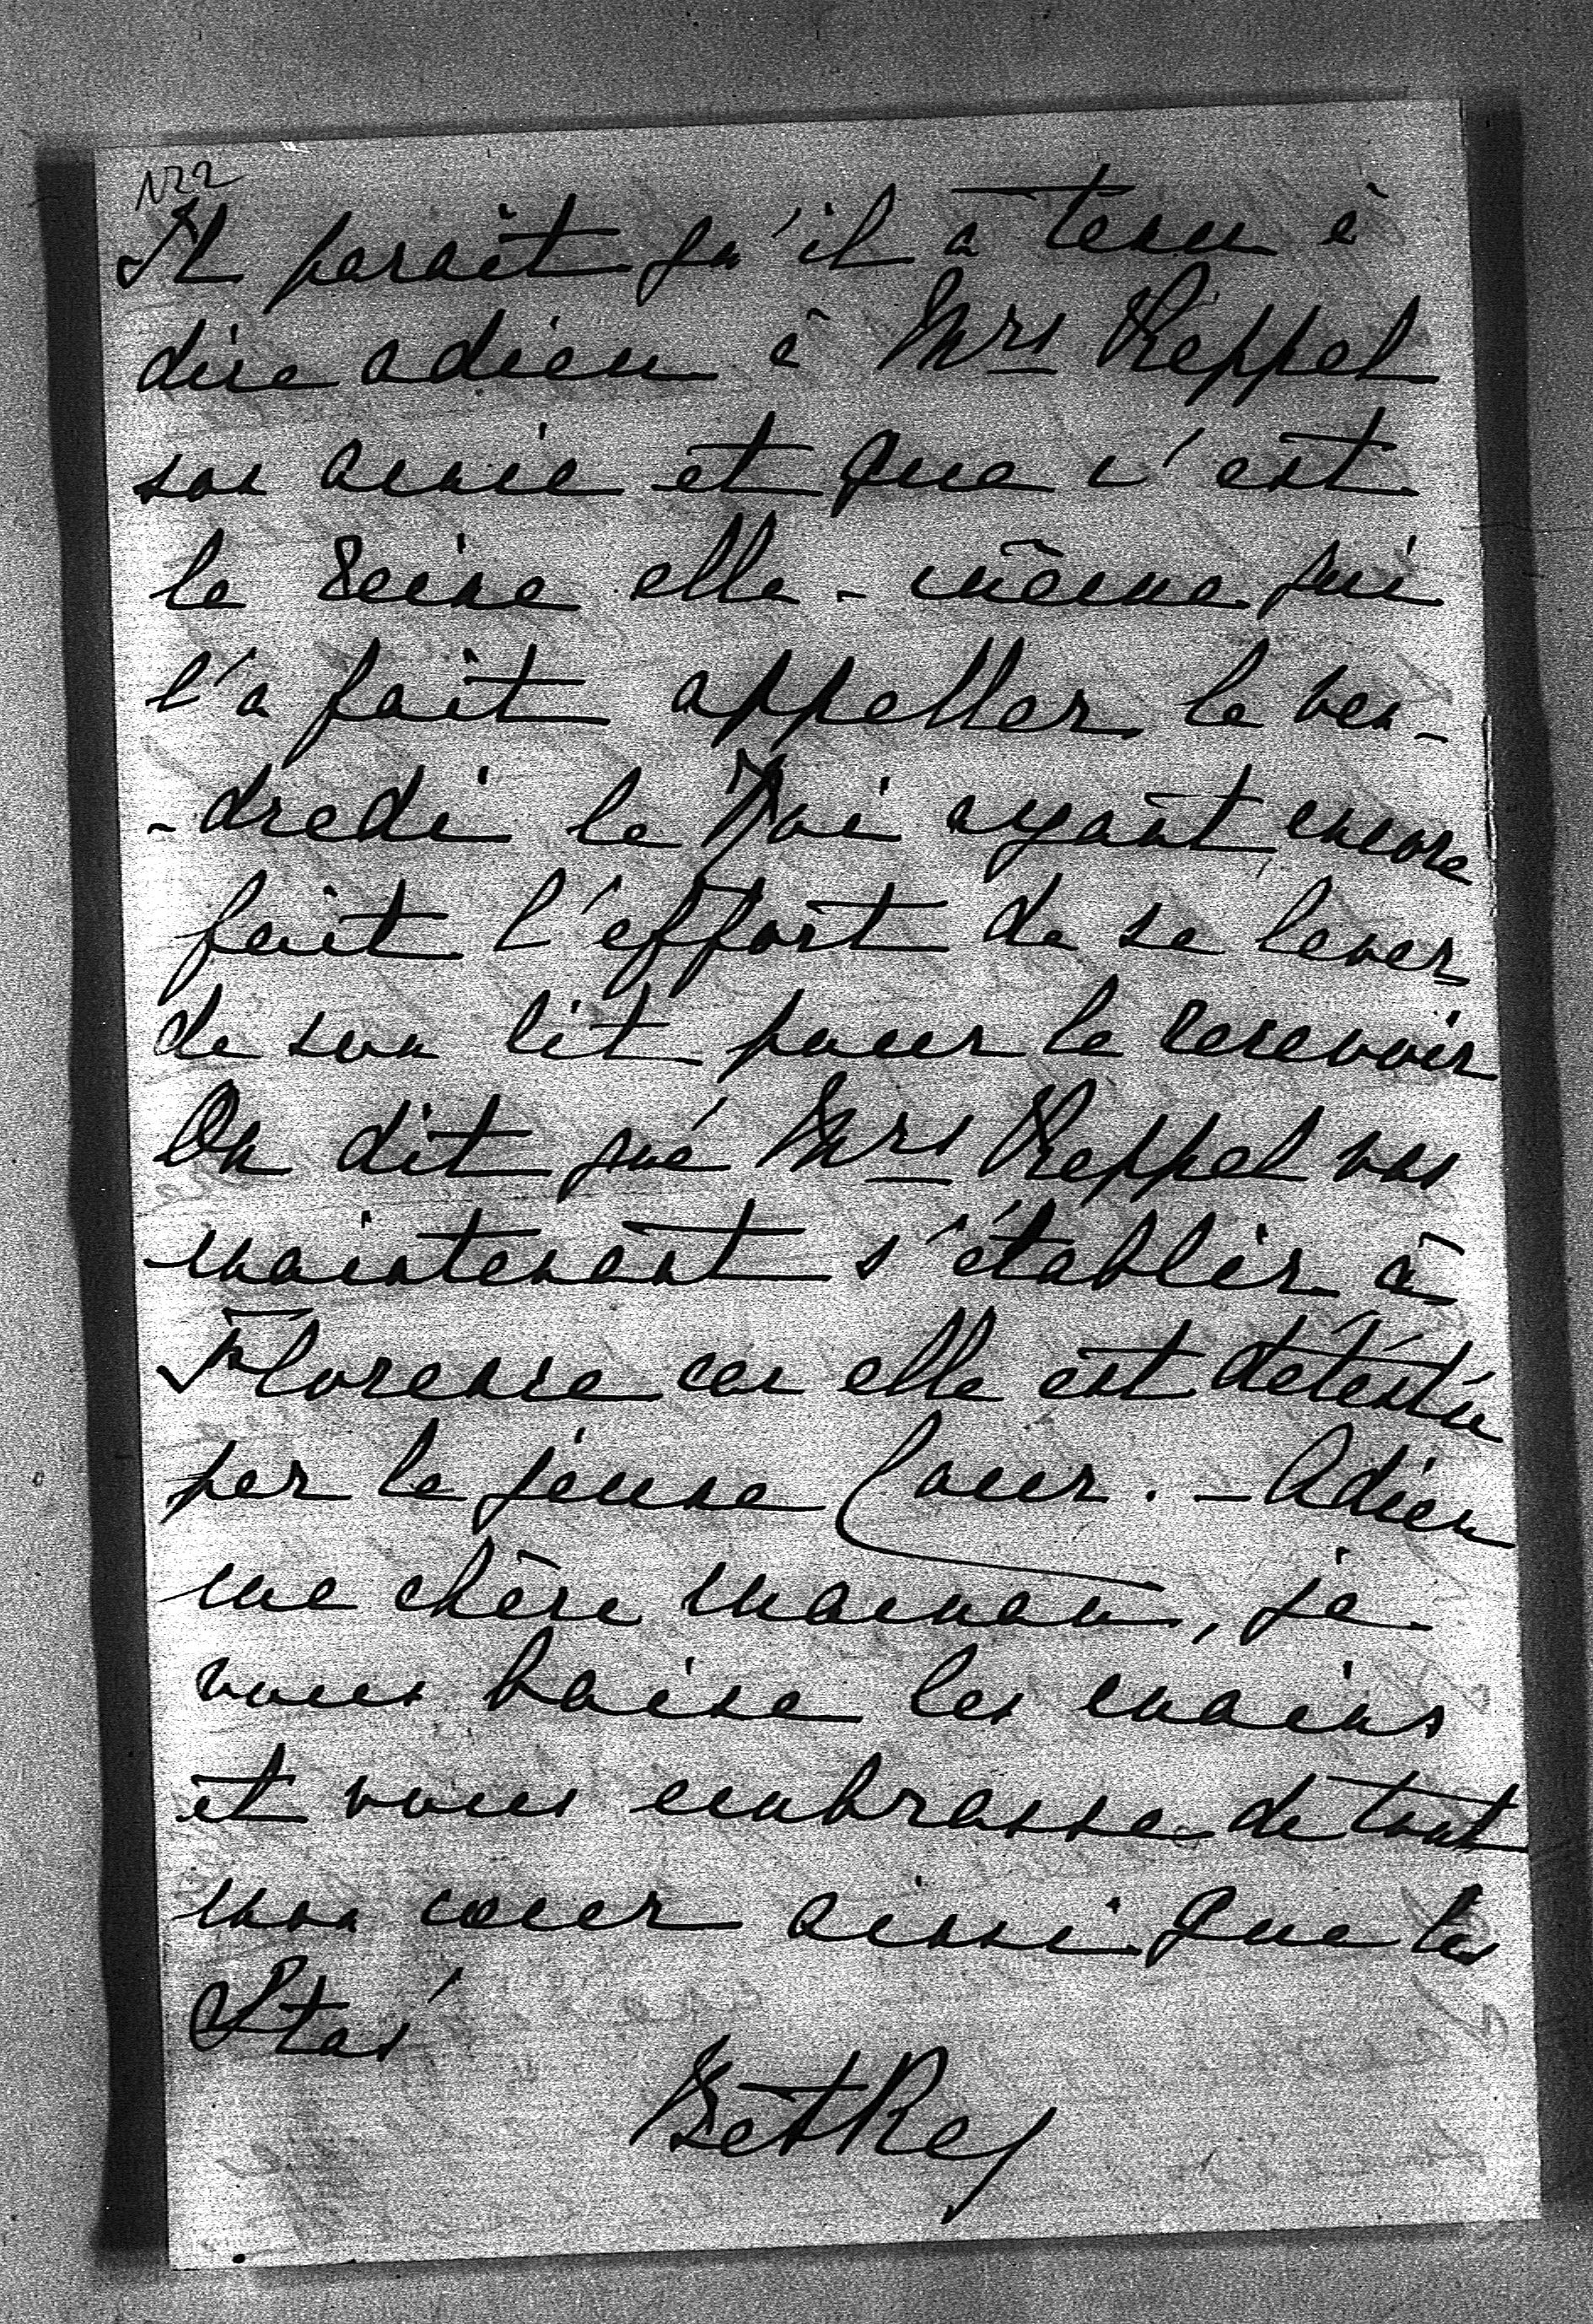 N22
Il parait qu'il a tenu à
dire adieu à Mrs Keppel
son amie et que c'est
la Reine elle-même qui
l'a fait appeller le ven-
-dredi le Roi ayant encore
fait l'effort de se lever
de son lit pour la recevoir
On dit que Mrs Keppel vas
maintenant s'établir à
Florence car elle est détestée
par la jeune Cour. - Adieu
ma chère maman, je
vous baise les mains
et vous embrasse de tout
mon cœur ainsi que les
Stas'